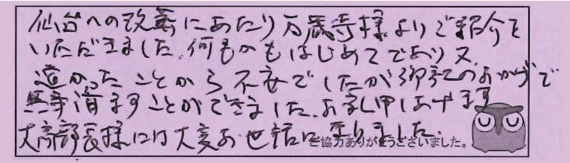 仙台への改葬にあたり万歳寺様よりご紹介を
いただきました。何もかもはじめてであり又
遠かったことから不安でしたが御社のおかげで
無事済ますことができました。お礼申しあげます
大斎部長様には大変お世話に至りました。
ご協力ありがとうございました。